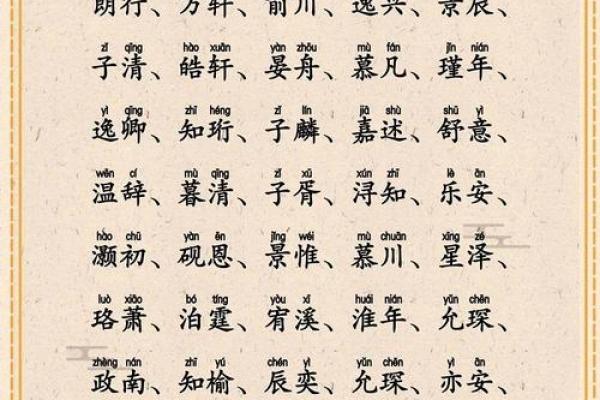 朗行、万轩、前川、逸兴、景辰、
zǐ qīng hào xuān yàn zhōu mù fán jǐn nián
子清、皓轩、晏舟、慕凡、瑾年、
yì qīng zhī héng zǐ lín jiā shù shū yì
逸卿、知珩、子麟、嘉述、舒意、
wēn cí mù qīng zǐ xū xún zhī lè ān
温辞、暮清、子胥、浔知、乐安、
hào chū yàn ēn jǐng wéi mù chuān xīng zé
灏初、砚恩、景惟、慕川、星泽、
luò xiāo bó tíng yòu xī huái nián yǔn chēn
珞萧、泊霆、宥溪、淮年、允琛、
zhèng nán zhī yú chén yì yǔn chēn yì ān
政南、知榆、辰奕、允琛、亦安、